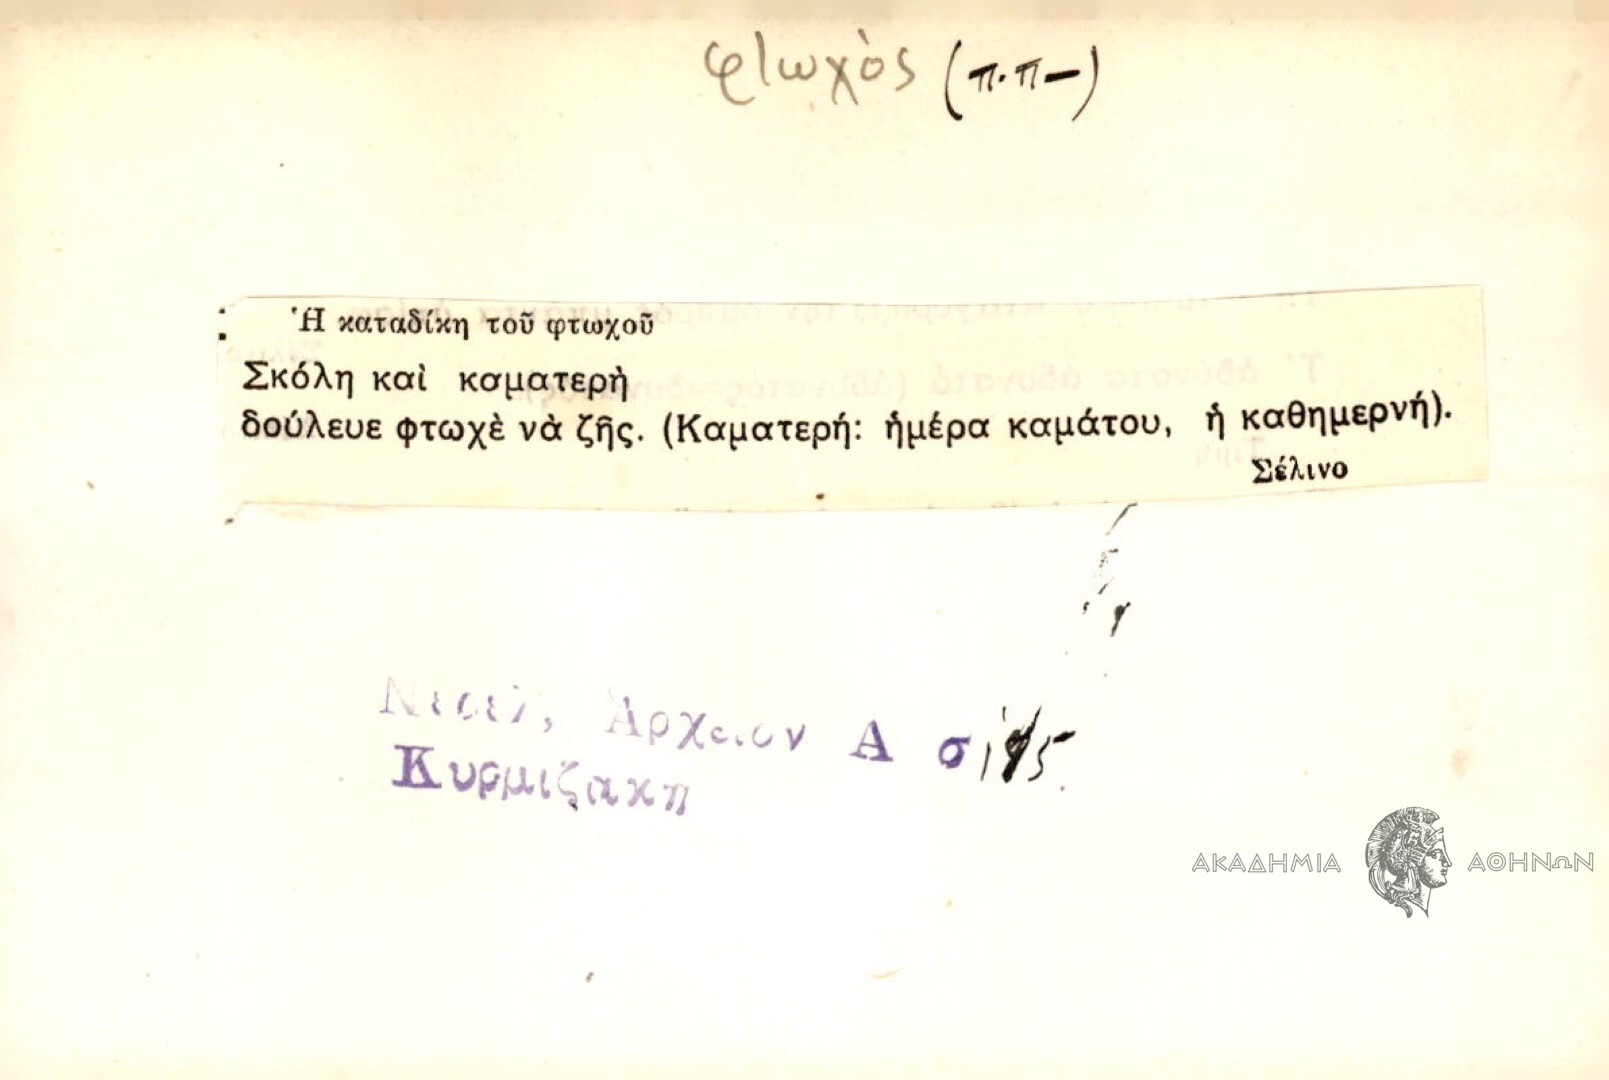 φτωχὸς (π.π—)
Ἡ καταδίκη τοῦ φτωχοῦ
Σκόλη καὶ καματερὴ
δούλευε φτωχὲ νὰ ζῆς. (Καματερή: ἡμέρα καμάτου, ἡ καθημερνή).
Σέλινο
Ἀρχεῖον Α σ
Κυρμιζακη
ΑΚΑΔΗΜΙΑ ΑΘΗΝΩΝ